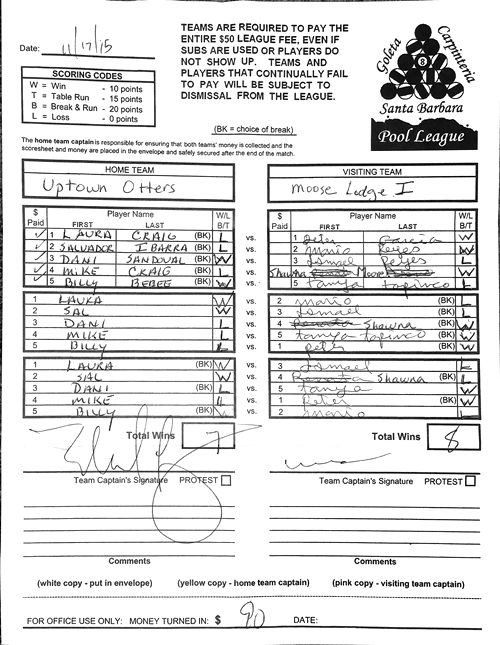 Date: 11/17/15
TEAMS ARE REQUIRED TO PAY THE
ENTIRE $50 LEAGUE FEE, EVEN IF
SUBS ARE USED OR PLAYERS DO
NOT SHOW UP. TEAMS AND
PLAYERS THAT CONTINUALLY FAIL
TO PAY WILL BE SUBJECT TO
DISMISSAL FROM THE LEAGUE.
(BK = choice of break)
SCORING CODES
W = Win - 10 points
T = Table Run - 15 points
B = Break & Run - 20 points
L = Loss - 0 points
Goleta Carpinteria
8
Santa Barbara
Pool League
The home team captain is responsible for ensuring that both teams' money is collected and the
scoresheet and money are placed in the envelope and safely secured after the end of the match.
HOME TEAM
Uptown Otters
VISITING TEAM
Moose Lodge I
$ Paid Player Name FIRST LAST W/L B/T
$ Paid Player Name FIRST LAST W/L B/T
1 LAURA CRAIG (BK) L vs. 1 Peter Garcia W
2 SALVADOR IBARRA (BK) L vs. 2 Mario Reyes W
3 DANI SANDOVAL (BK) W vs. 3 Ismael Reyes L
4 MIKE CRAIG (BK) L vs. Shawna Moore W
5 BILLY BEBEE (BK) W vs. 5 tanya L
1 LAURA W vs. 2 mario (BK) L
2 SAL W vs. 3 Ismael (BK) L
3 DANI L vs. 4 Shawna (BK) W
4 MIKE L vs. 5 tanya (BK) W
5 BILLY L vs. 1 peter (BK) W
1 LAURA (BK) W vs. 3 Ismael L
2 SAL W vs. 4 Shawna (BK) L
3 DANI (BK) L vs. 5 tanya W
4 MIKE L vs. 1 Peter (BK) W
5 BILLY (BK) W vs. 2 mario L
Total Wins 7
Total Wins 8
Team Captain's Signature PROTEST
Team Captain's Signature PROTEST
Comments
Comments
(white copy - put in envelope) (yellow copy - home team captain) (pink copy - visiting team captain)
FOR OFFICE USE ONLY: MONEY TURNED IN: $ 90 DATE: